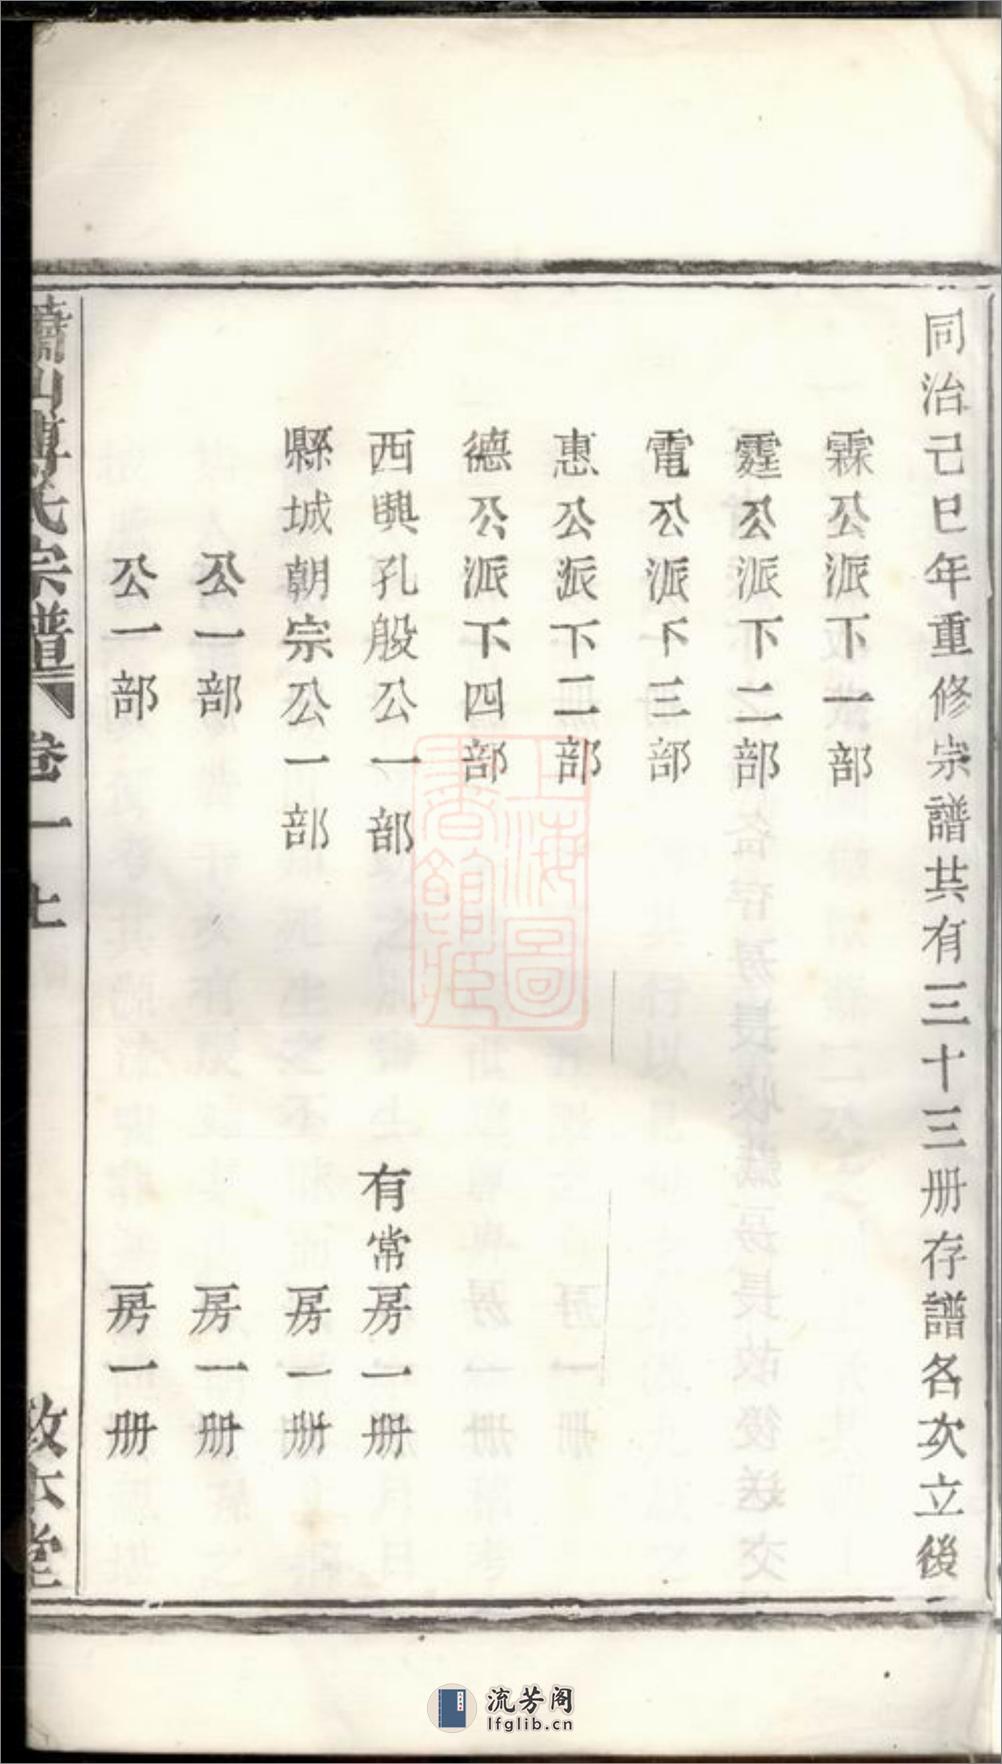 同治己巳年重修宗譜共有三十三册存譜各次立後
霖公派下一部
霆公派下二部
電公派下三部
惠公派下二部
德公派下四部
西興孔殷公一部 有常房一册
縣城朝宗公一部 房一册
公一部 房一册
公一部 房一册
蕭山傅氏宗譜 卷一 七 敦本堂
上海圖書館藏
流芳阁
lfglib.cn